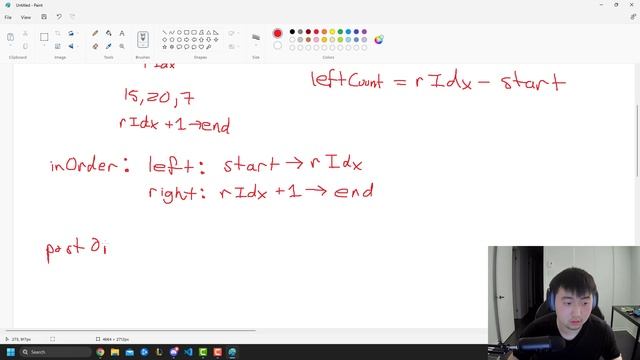 Untitled - Paint
File Edit View
Clipboard Image Tools Brushes Shapes Size Colors
rIdx
leftCount = rIdx - start
15, 20, 7
rIdx + 1 → end
inOrder: left: start → rIdx
right: rIdx + 1 → end
post Oi
273, 917px 4664 × 2712px
Search